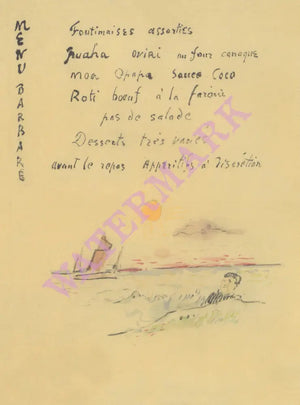 MENU BARBARE
Foutimaises assorties
Puaha oviri au four canaque
Moa Opapa Sauce Coco
Roti bœuf à la
pas de salade
Desserts très variés
avant le repas Apperitifs à discrétion
WATERMARK